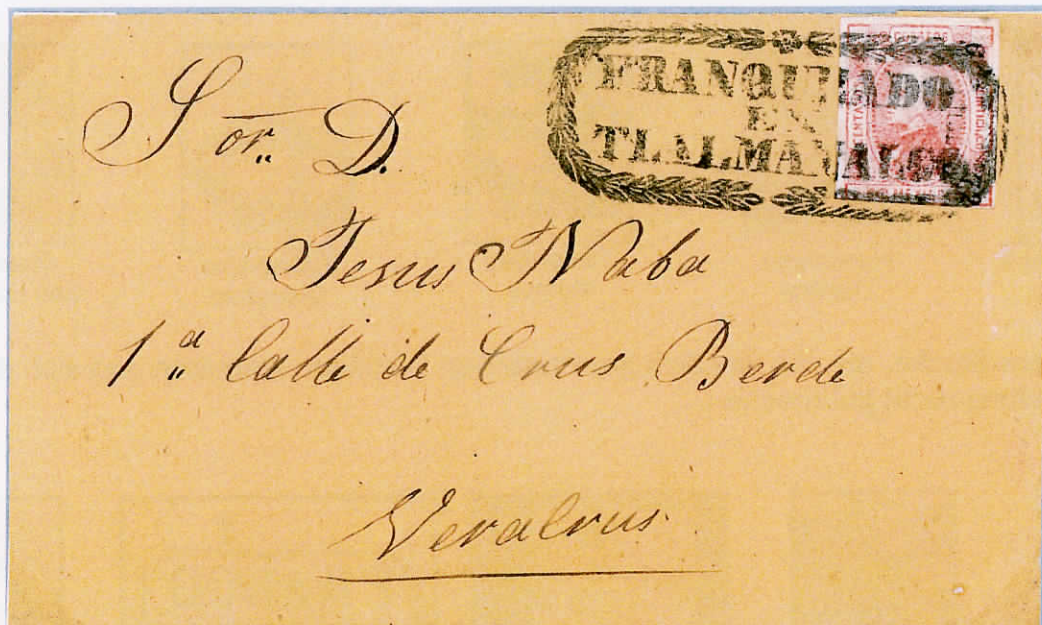 FRANQUEADO
EN
TLALMANALCO
Sor. D.
Jesus Naba
1a. Calle de Crus Berde
VeraCrus